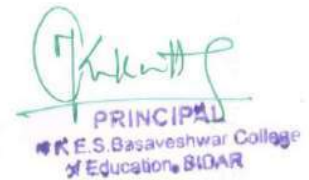 PRINCIPAL
K.E.S.Basaveshwar College
of Education, BIDAR